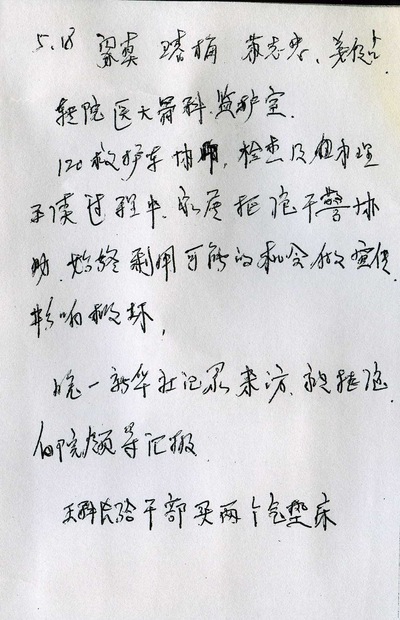 5.18
转院医大骨科监护室.
120救护车协助, 检查及办理
手续过程中, 家属拒绝干警协
助, 始终利用可能的机会做宣传
影响极坏,
晚一新华社记录来访, 拒绝.
向院领导汇报.
王科长给干部买两个气垫床